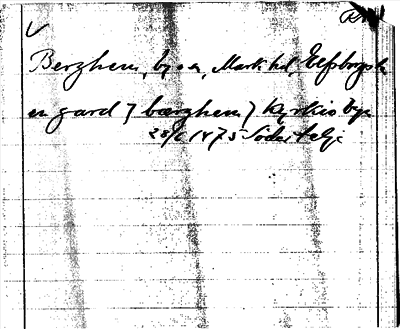 Berghem, by o sn, Mark hd, Elfsborgs l
en gard 7 bærghem 7 Kyrkio by
28/6 1475 Södertelje